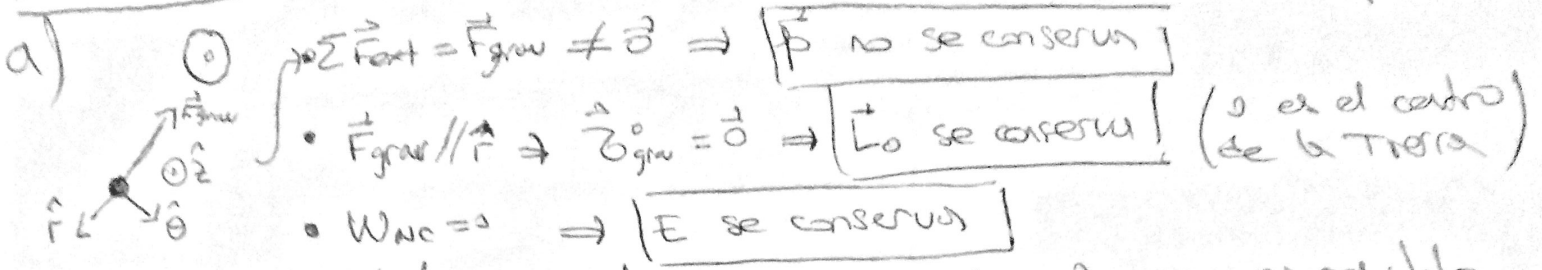 a) • Σ F⃗ext = F⃗grav ≠ 0⃗ ⇒ p⃗ no se conserva
F⃗grav
• F⃗grav // r̂ ⇒ τ⃗°grav = 0⃗ ⇒ L⃗o se conserva (o es el centro de la Tierra)
ẑ
r̂ θ̂
• WNC = 0 ⇒ E se conserva